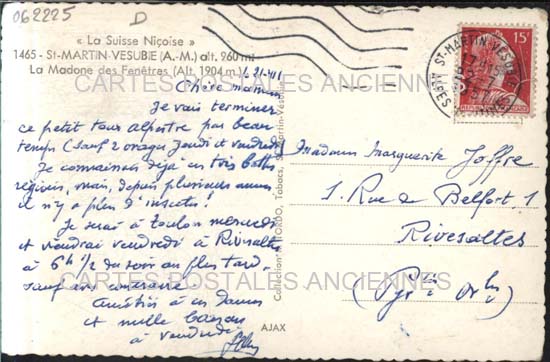 062225
D
« La Suisse Niçoise »
1465 - St-MARTIN-VESUBIE (A.-M.) alt. 960 m
La Madone des Fenêtres (Alt. 1904 m.)
Chère maman
Je vais terminer
ce petit tour alpestre par beau
temps (sauf 2 orages jeudi et vendredi)
Je connaissais déjà ces trois belles
régions, mais, depuis plusieurs années
il n'y a plus d'insectes !
Je serai à Toulon mercredi
et viendrai vendredi à Rivesaltes
à 6h 1/2 du soir au plus tard
sauf avis contraire
Amitiés à ces dames
et mille baisers
à vendredi
Collection MITORDO, Tabacs, St-Martin-Vésubie
AJAX
ST-MARTIN-VESUBIE
15F
Madame Marguerite Joffre
1. Rue de Belfort. 1
Rivesaltes
(Pyr. Or.)
CARTES POSTALES ANCIENNES
CARTES POSTALES ANCIENNES